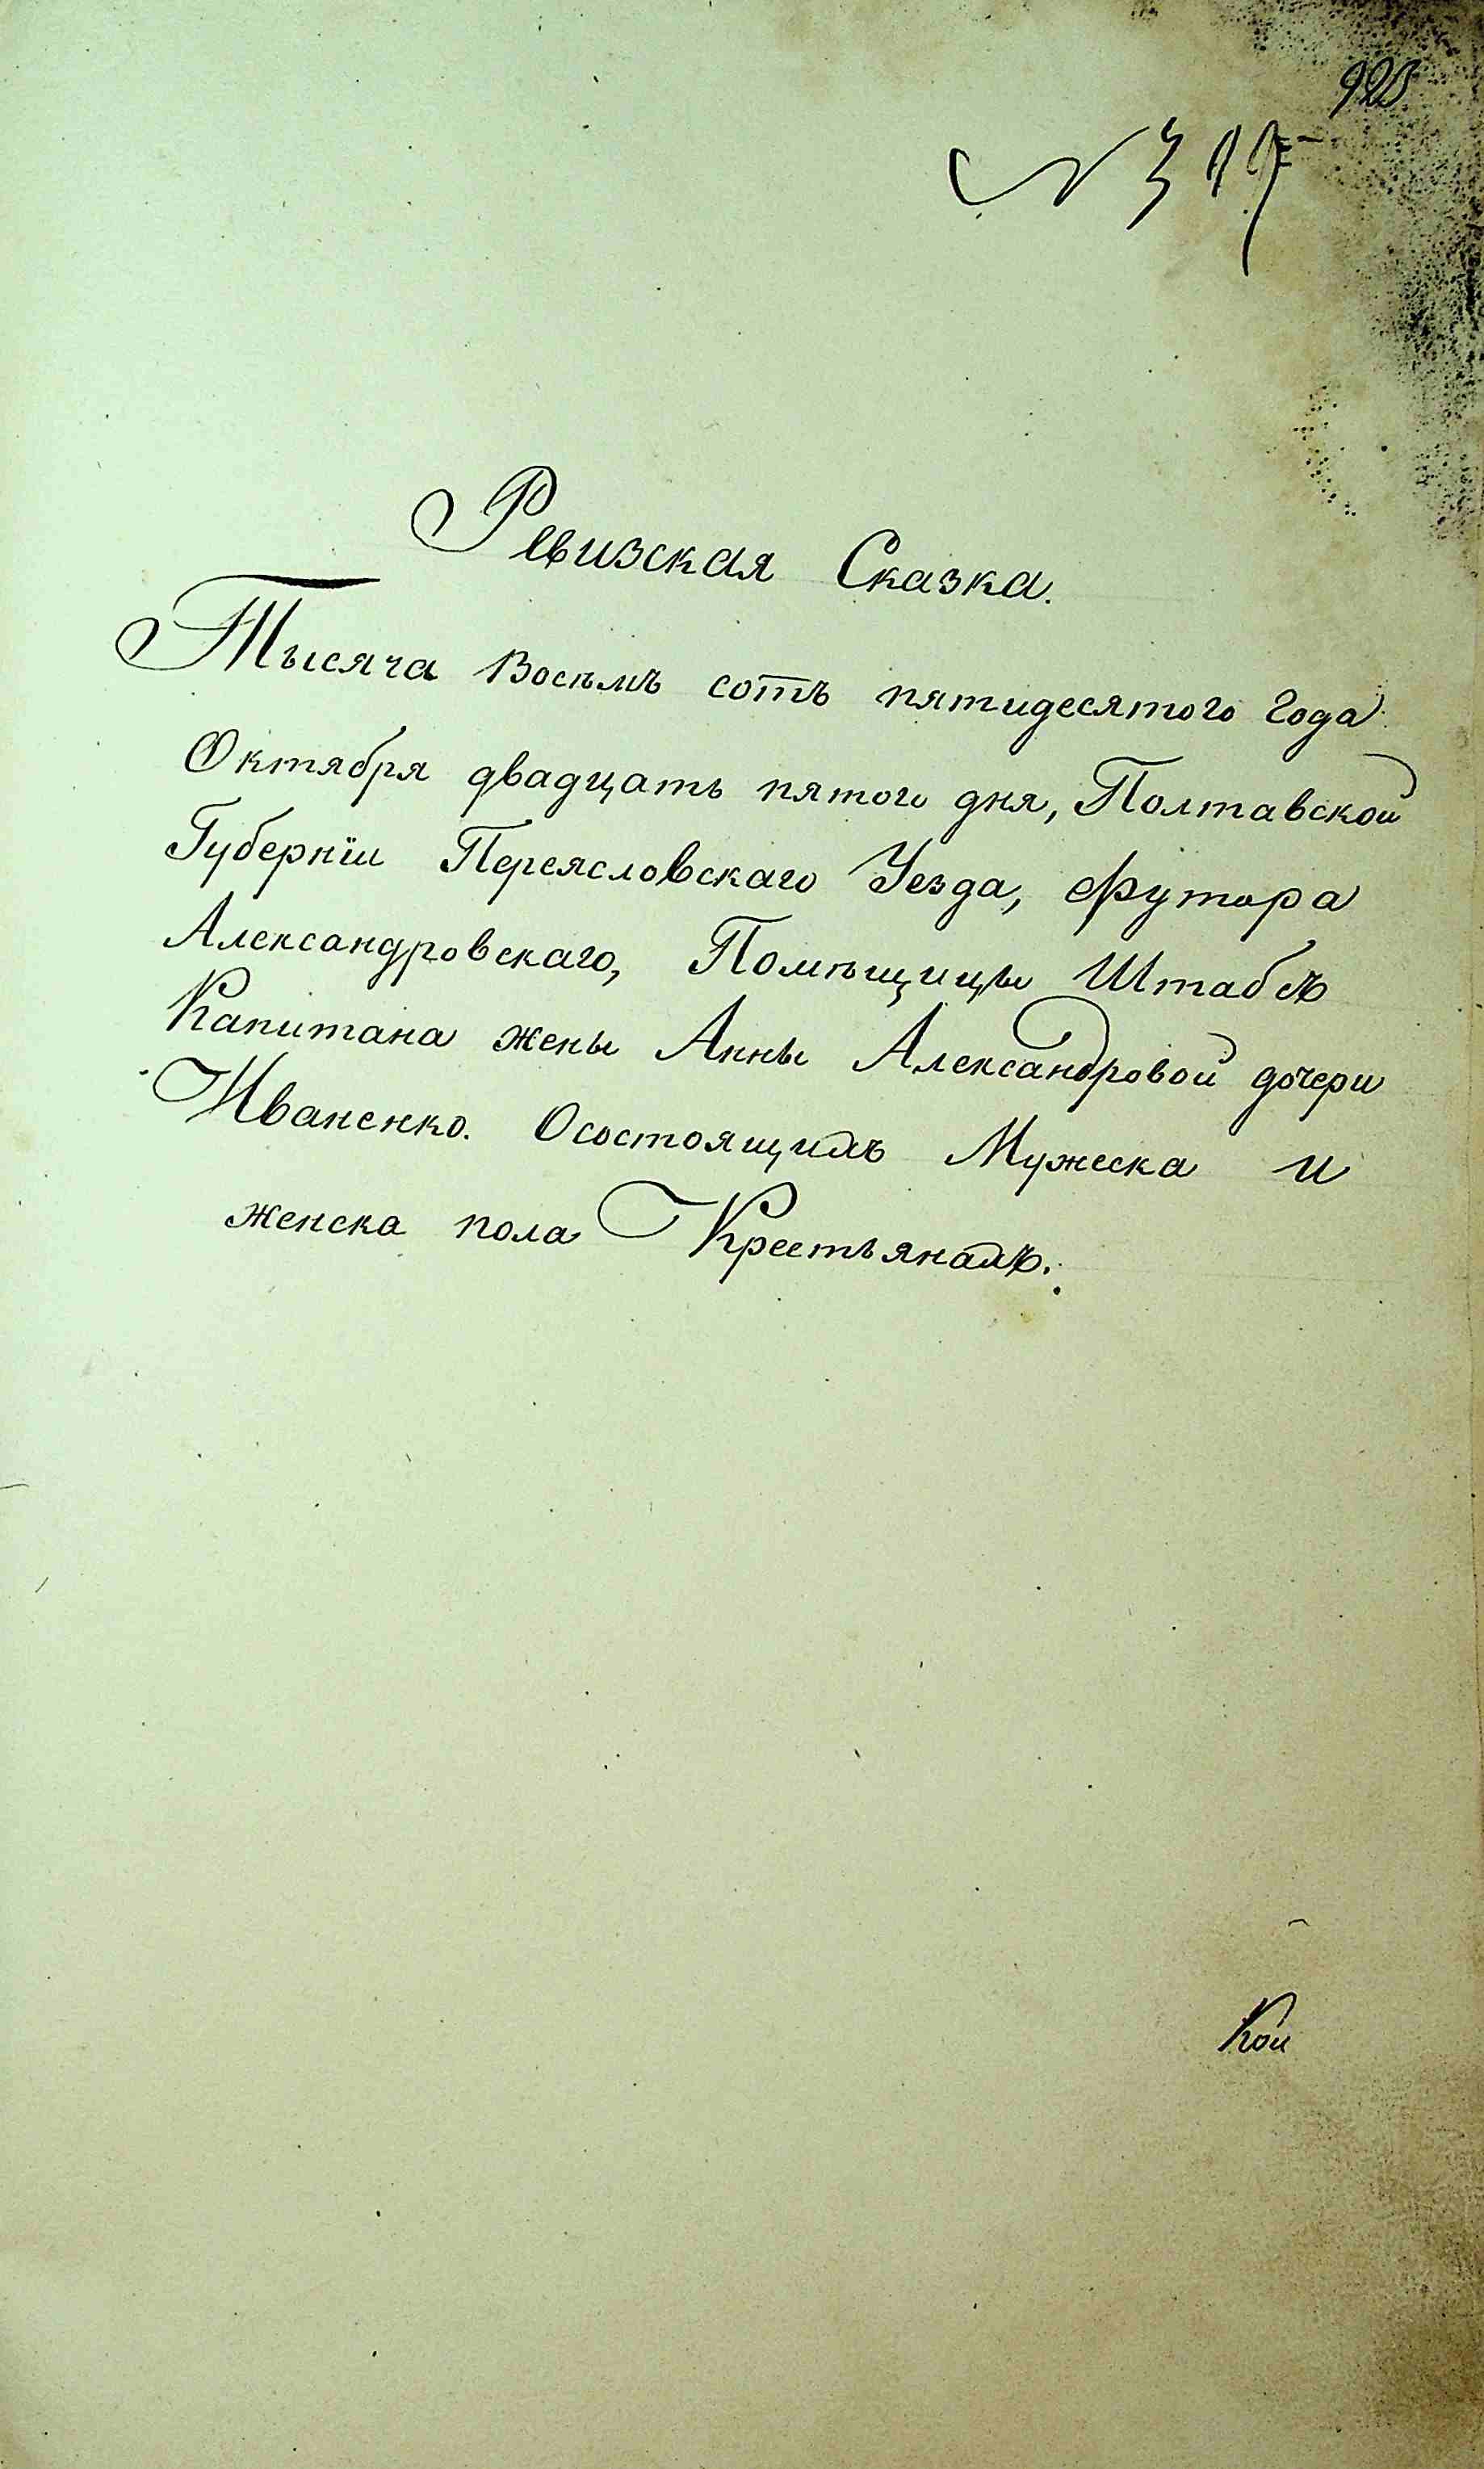 Ревизская Сказка.
Тысяча Восемь сотъ пятидесятого года
Октября двадцать пятого дня, Полтавской
Губернїи Переясловскаго Уезда, Футора
Александровскаго, Помѣщицы Штабсъ
Капитана жены Анны Александровой дочери
Иваненко. Осостоящихъ Мужеска и
женска пола Крестьянахъ.
Кои